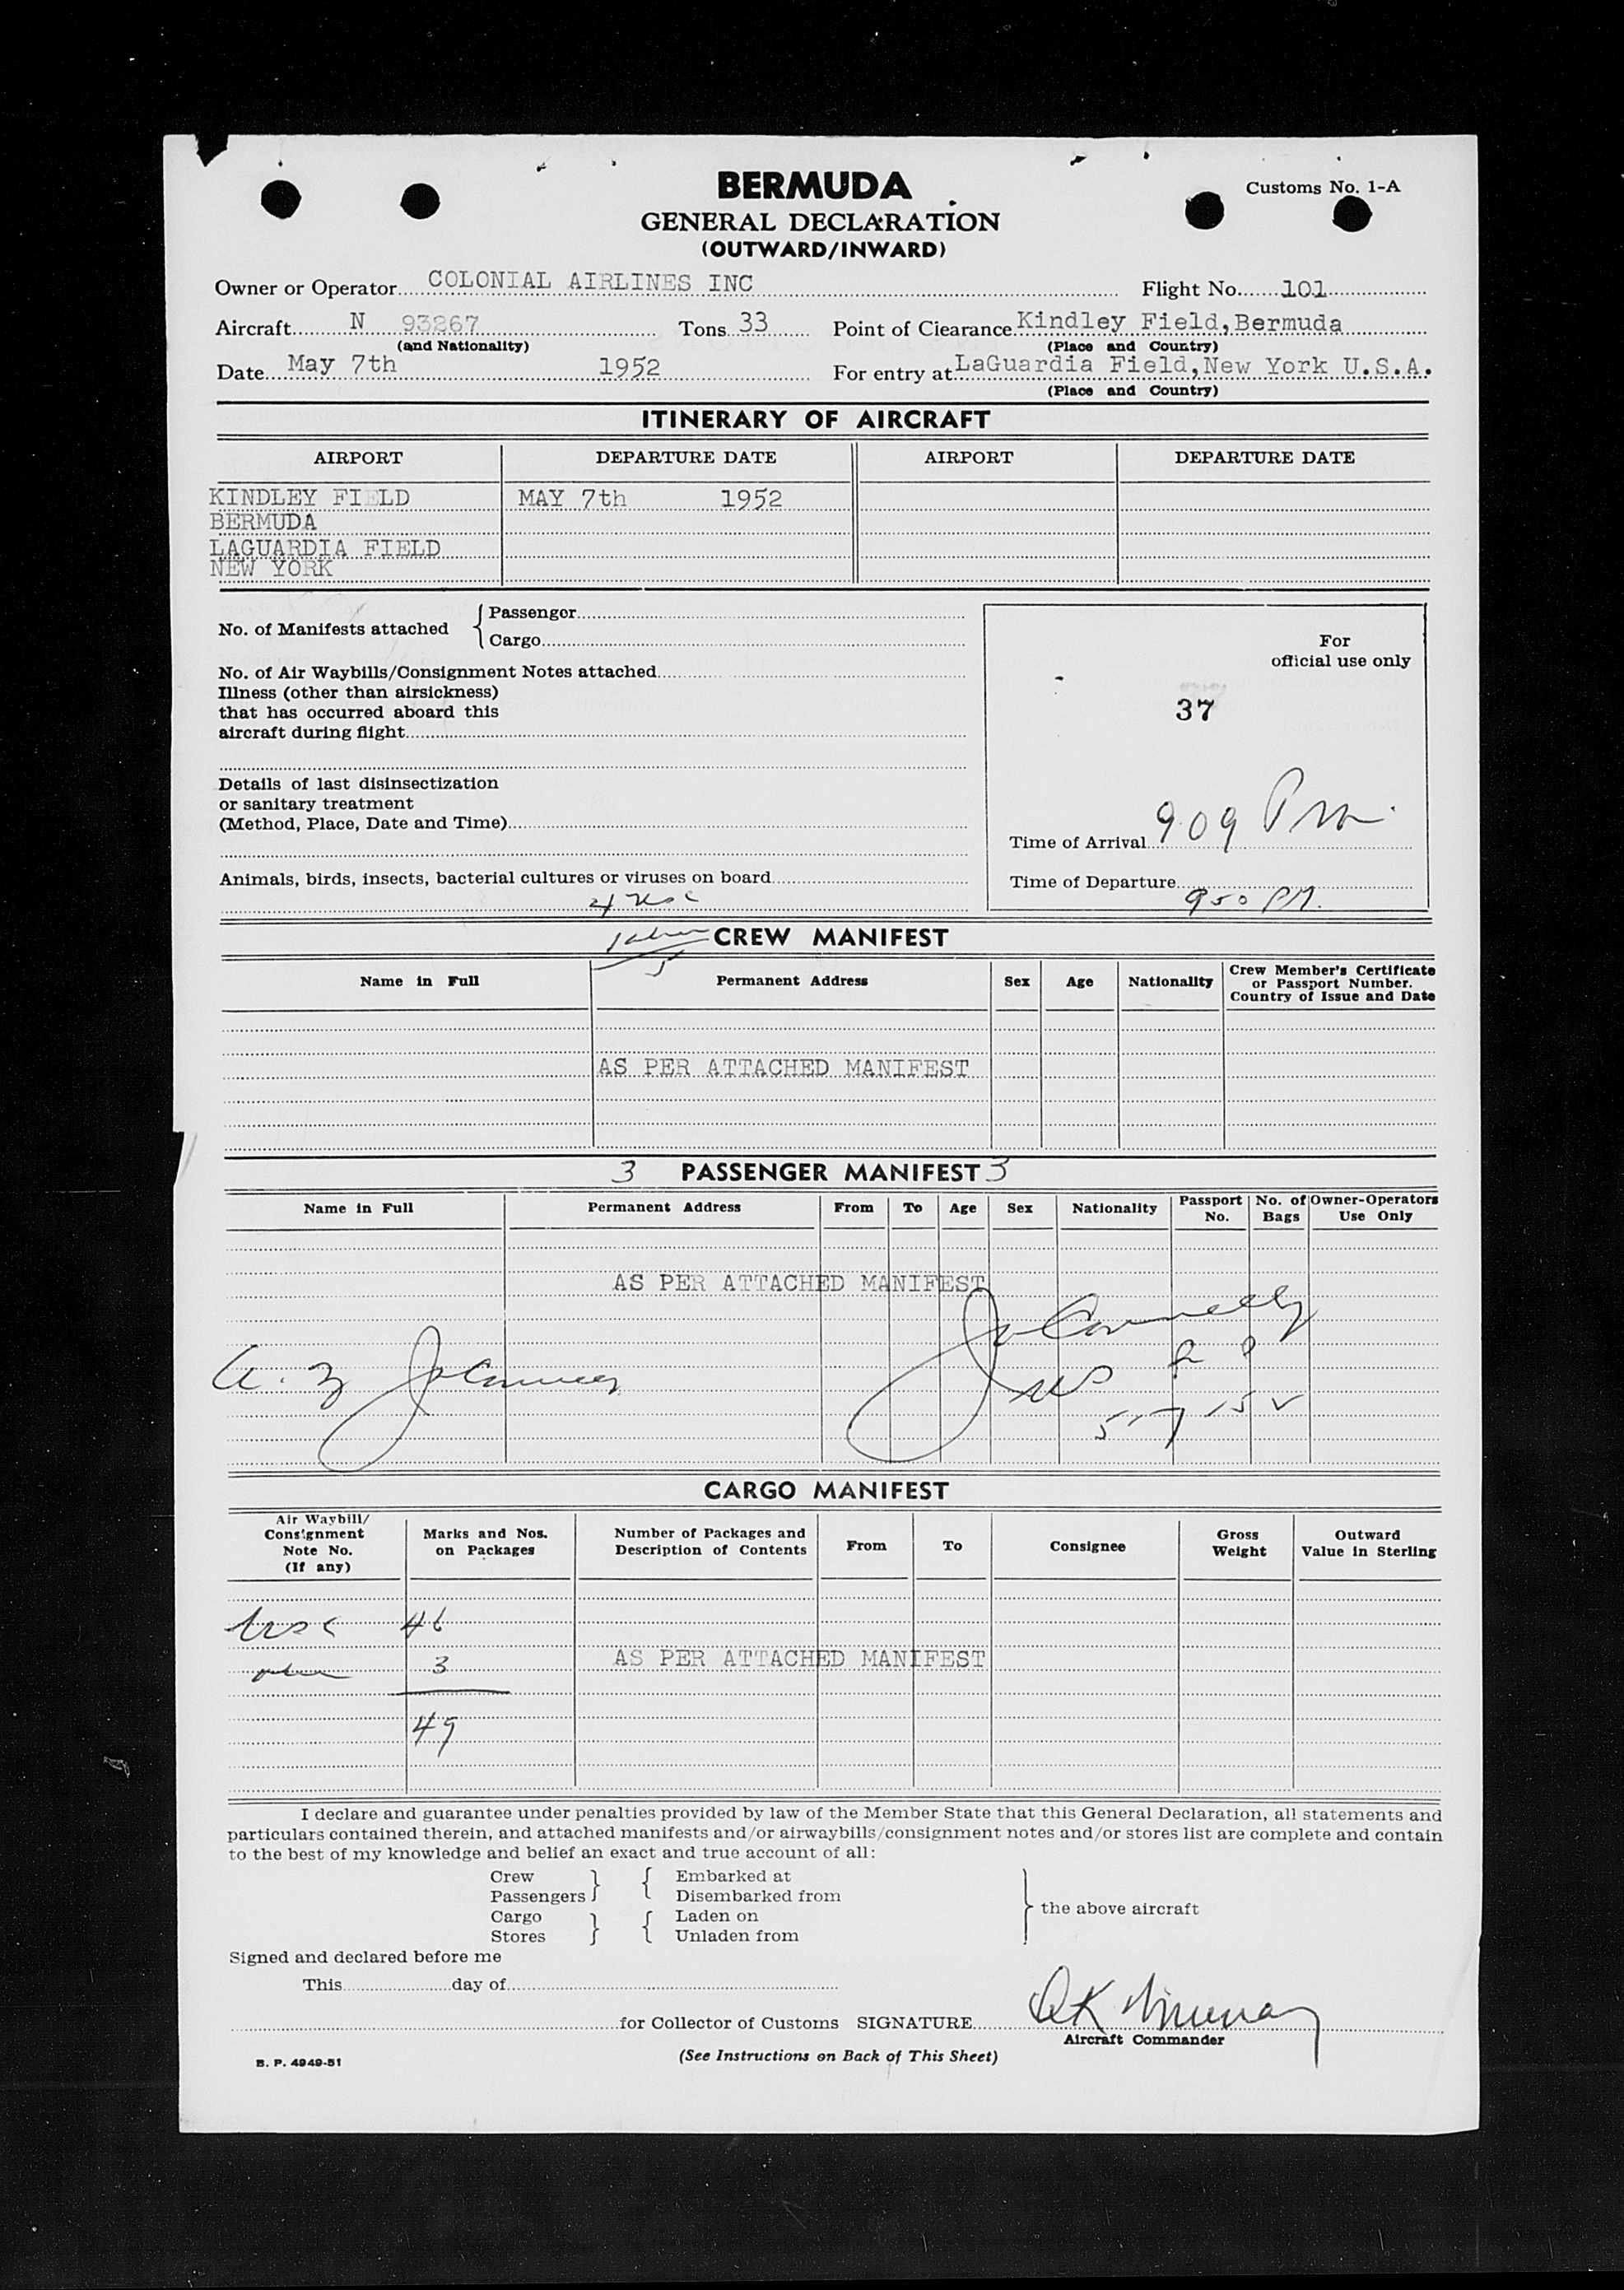 BERMUDA
Customs No. 1-A
GENERAL DECLARATION
(OUTWARD/INWARD)
Owner or Operator COLONIAL AIRLINES INC Flight No. 101
Aircraft N 93267 Tons 33 Point of Clearance Kindley Field, Bermuda
(and Nationality) (Place and Country)
Date May 7th 1952 For entry at LaGuardia Field, New York U.S.A.
(Place and Country)
ITINERARY OF AIRCRAFT
AIRPORT DEPARTURE DATE AIRPORT DEPARTURE DATE
KINDLEY FIELD MAY 7th 1952
BERMUDA
LAGUARDIA FIELD
NEW YORK
No. of Manifests attached { Passenger
Cargo
No. of Air Waybills/Consignment Notes attached
Illness (other than airsickness)
that has occurred aboard this
aircraft during flight
Details of last disinsectization
or sanitary treatment
(Method, Place, Date and Time)
Animals, birds, insects, bacterial cultures or viruses on board
For
official use only
37
Time of Arrival 9 09 Pm
Time of Departure 9 50 PM.
4 usc
CREW MANIFEST
5
Name in Full Permanent Address Sex Age Nationality Crew Member's Certificate
or Passport Number.
Country of Issue and Date
AS PER ATTACHED MANIFEST
3 PASSENGER MANIFEST 3
Name in Full Permanent Address From To Age Sex Nationality Passport No. No. of Bags Owner-Operators Use Only
AS PER ATTACHED MANIFEST
5-7-52
CARGO MANIFEST
Air Waybill/
Consignment
Note No.
(If any)
Marks and Nos.
on Packages
Number of Packages and
Description of Contents
From To Consignee
Gross
Weight
Outward
Value in Sterling
usc 46
3 AS PER ATTACHED MANIFEST
49
I declare and guarantee under penalties provided by law of the Member State that this General Declaration, all statements and
particulars contained therein, and attached manifests and/or airwaybills/consignment notes and/or stores list are complete and contain
to the best of my knowledge and belief an exact and true account of all:
Crew } { Embarked at
Passengers Disembarked from
Cargo } { Laden on
Stores Unladen from
} the above aircraft
Signed and declared before me
This day of
for Collector of Customs SIGNATURE
Aircraft Commander
B. P. 4949-51
(See Instructions on Back of This Sheet)